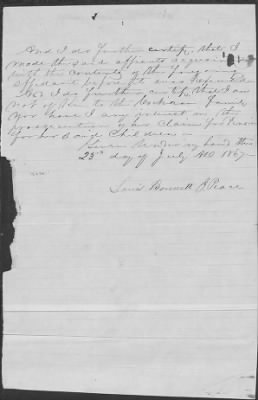 And I do further certify, that I
made the said affiants acquainted
with the contents of the foregoing
affidavit before it was
And I do further certify that I am
not of Kin to the Family
nor have I any interest in the
prosecution of her Claim for Pension
for her & said Children
Given under my hand this
23rd day of July AD 1867
Bennett J. Peace